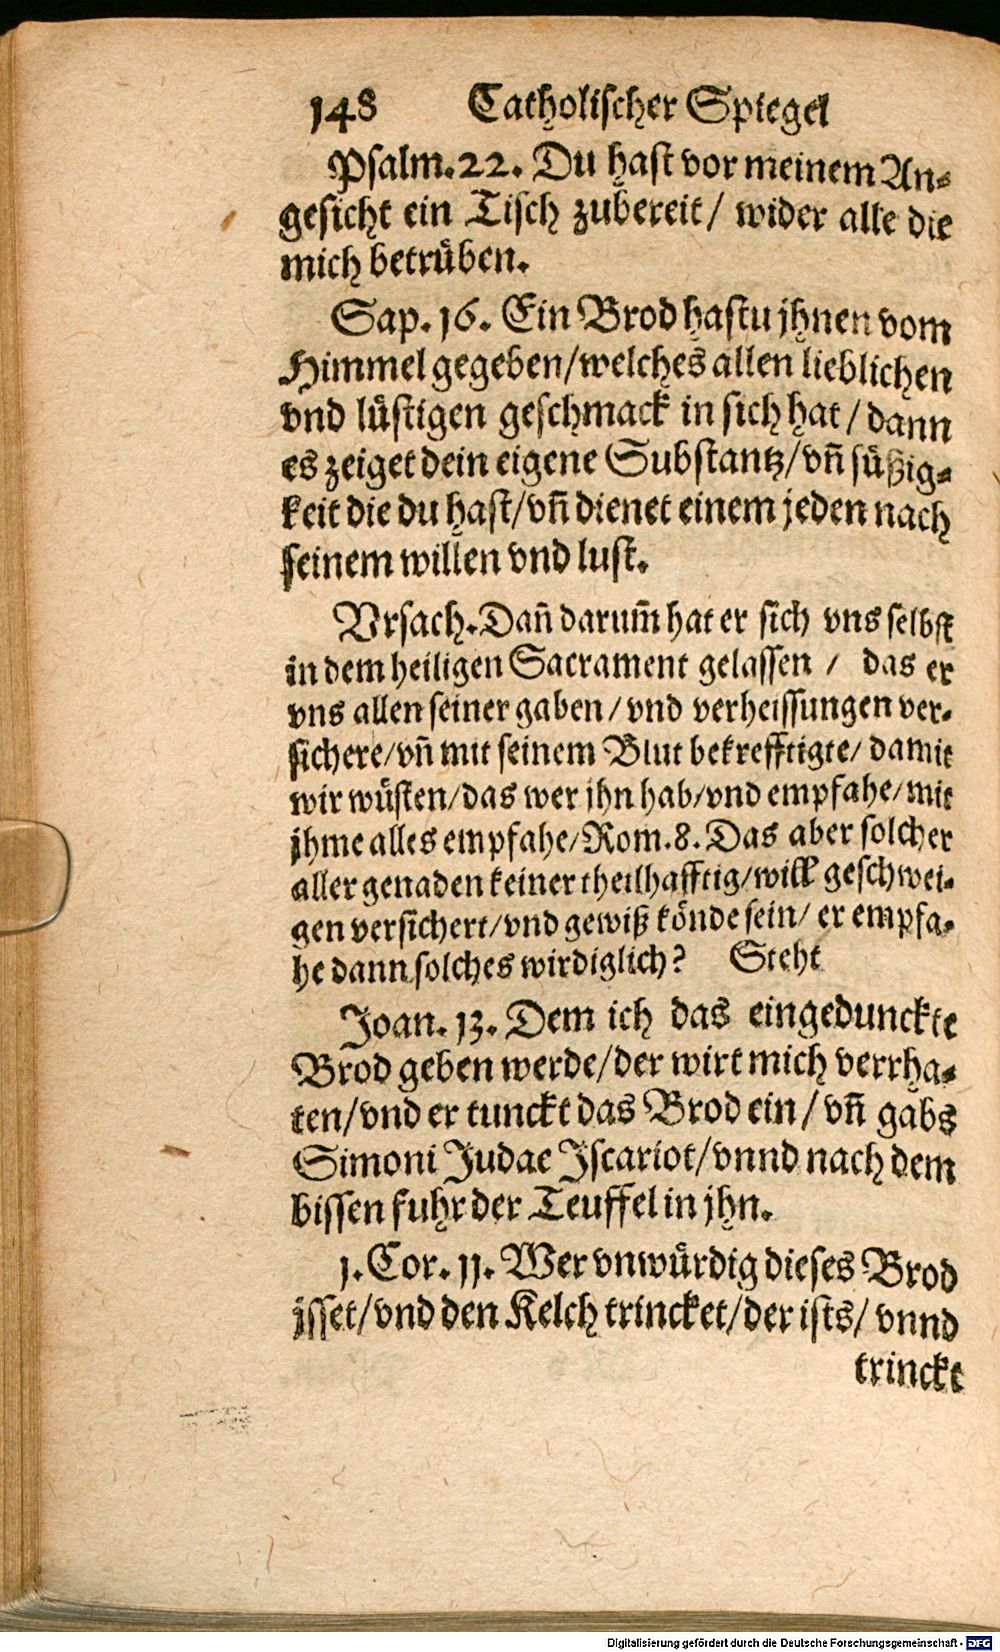 148 Catholischer Spiegel
Psalm. 22. Du hast vor meinem An-
gesicht ein Tisch zubereit/ wider alle die
mich betrüben.
Sap. 16. Ein Brod hastu jhnen vom
Himmel gegeben/welches allen lieblichen
vnd lüstigen geschmack in sich hat/dann
es zeiget dein eigene Substantz/vñ süßig-
keit die du hast/vñ dienet einem jeden nach
seinem willen vnd lust.
Vrsach. Dañ darum̃ hat er sich vns selbst
in dem heiligen Sacrament gelassen / das er
vns allen seiner gaben/vnd verheissungen ver-
sichere/vñ mit seinem Blut bekrefftigte/ damit
wir wüsten/das wer jhn hab/vnd empfahe/mit
jhme alles empfahe/Rom. 8. Das aber solcher
aller genaden keiner theilhafftig/will geschwei-
gen versichert/vnd gewiß könde sein/ er empfa-
he dann solches wirdiglich? Steht
Joan. 13. Dem ich das eingedunckte
Brod geben werde/der wirt mich verrha-
ten/vnd er tunckt das Brod ein/vñ gabs
Simoni Judae Iscariot/vnnd nach dem
bissen fuhr der Teuffel in jhn.
1. Cor. 11. Wer vnwürdig dieses Brod
isset/vnd den Kelch trincket/der ists/ vnnd
trinckt
Digitalisierung gefördert durch die Deutsche Forschungsgemeinschaft - DFG